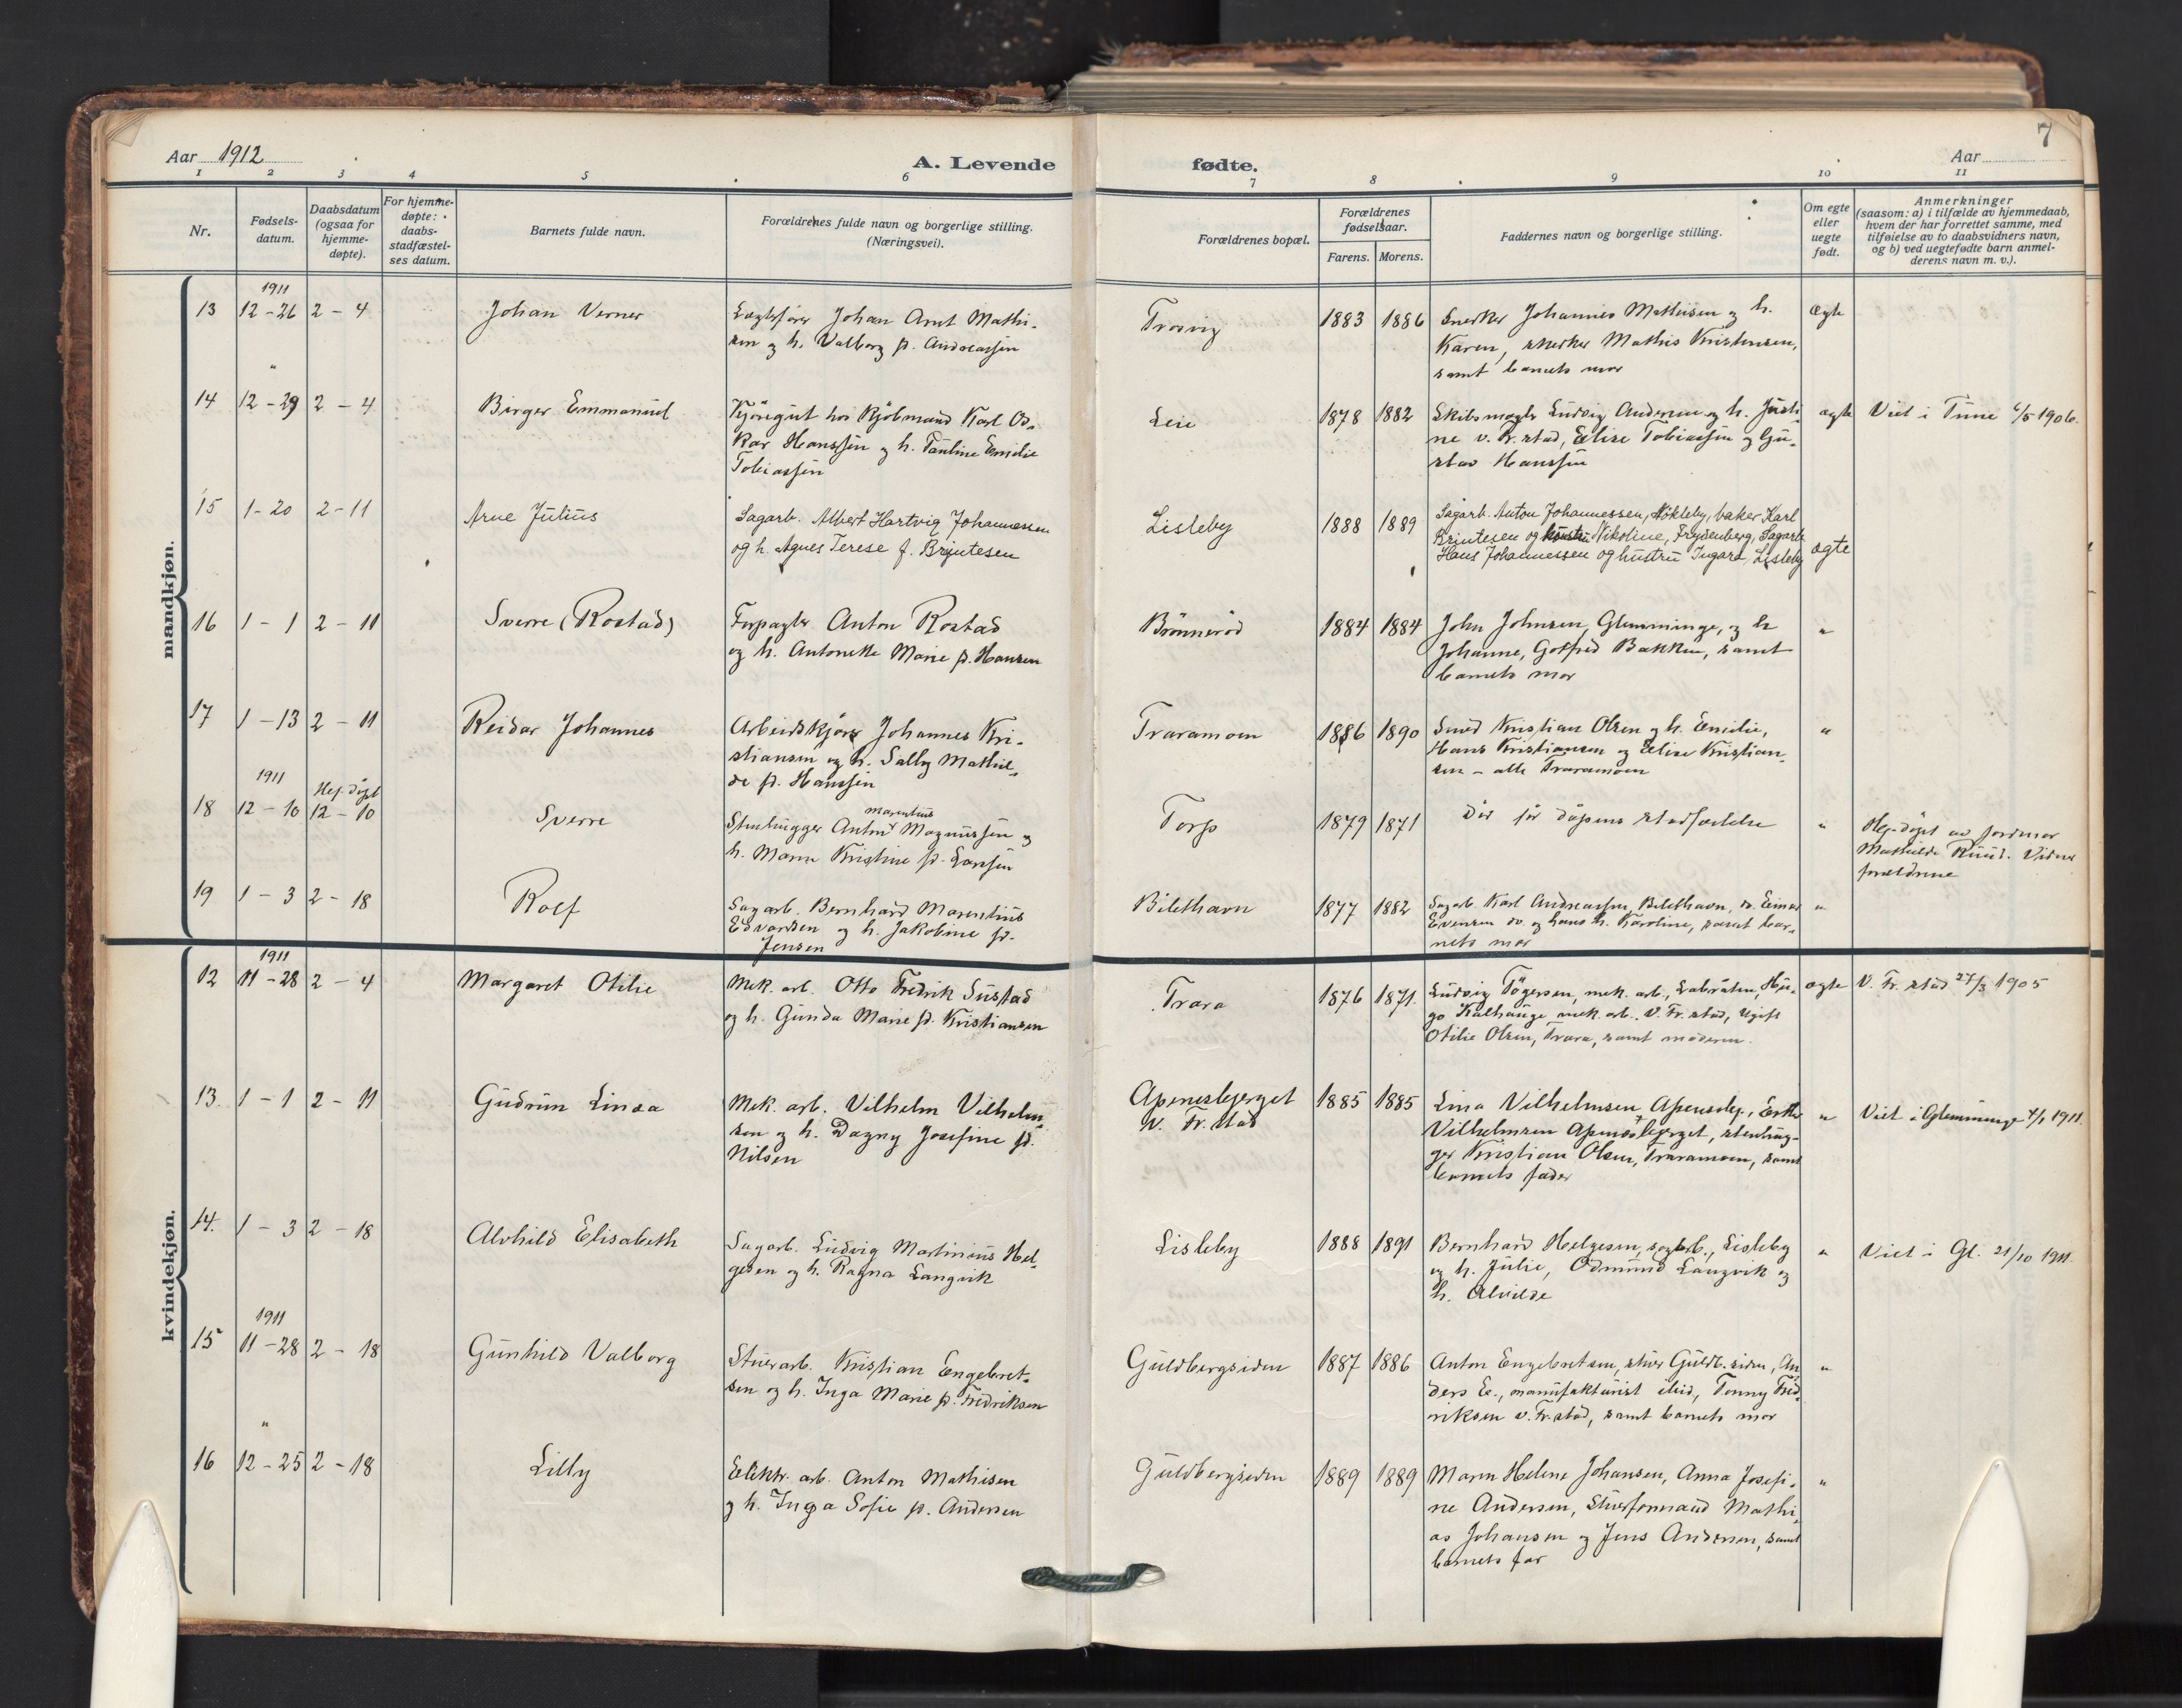 7
Aar 1912
A. Levende fødte.
Aar
1 2 3 4 5 6 7 8 9 10 11
Nr.
Fødsels-
datum.
Daabsdatum
(ogsaa for
hjemme-
døpte).
For hjemme-
døpte:
daabs-
stadfæstel-
ses datum.
Barnets fulde navn.
Forældrenes fulde navn og borgerlige stilling.
(Næringsvei).
Forældrenes bopæl.
Forældrenes
fødselsaar.
Farens. Morens.
Faddernes navn og borgerlige stilling.
Om egte
eller
uegte
født.
Anmerkninger
(saasom: a) i tilfælde av hjemmedaab,
hvem der har forrettet samme, med
tilføielse av to daabsvidners navn,
og b) ved uegtefødte barn anmel-
derens navn m. v.).
mandkjøn.
13
1911
12-26
2-4
Johan Verner
Johan Arnt Mathi-
sen og h. Valborg f. Andreassen
Trosvig
1883 1886
Snerker Johannes Mathisen og h.
Karen, snerker Mathis Kristensen,
samt barnets mor
ægte
14
"
12-29
2-4
Birger Emmanuel
hos Kjøbmand Karl Os-
kar Hanssen og h. Pauline Emilie
Tobiassen
Leie
1878 1882
Skibsmægler Ludvig Andersen og h. Justi-
ne v. Fr.stad, Elise Tobiassen og Gu-
stav Hanssen
ægte
Viet i Tune 6/5 1906.
15
1-20
2-11
Arne Julius
Sagarb. Albert Hartvig Johannessen
og h. Agnes Terese f. Bryntesen
Lisleby
1888 1889
Sagarb. Anton Johannessen, Nökleby, baker Karl
Bryntesen og hustru Nikoline, Frydenberg, Sagarb.
Hans Johannessen og hustru Ingara, Lisleby
ægte
16
1-1
2-11
Sverre (Rostad)
Forpagter Anton Rostad
og h. Antonette Marie f. Hansen
Brönneröd
1884 1884
John Johnsen, Glemminge, og h
Johanne, Gotfred Bakken, samt
barnets mor
"
17
1-13
2-11
Reidar Johannes
Arbeidskjører Johannes Kri-
stiansen og h. Sally Mathil-
de f. Hanssen
Traramoen
1886 1890
Smed Kristian Olsen og h. Emilie,
Hans Kristiansen og Elise Kristian-
sen - alle Traramoen
"
18
1911
12-10
Hj. döpt
12-10
Sverre
Marentius
Stenhugger Anton Magnussen og
h. Maren Kristine f. Larssen
Torp
1879 1871
Död för dåpens stadfæstelse
"
Hj. döpt av jordmor
Mathilde Ruud. Vidner
forældrene
19
1-3
2-18
Rolf
Sagarb. Bernhard Marentius
Edvardsen og h. Jakobine f.
Jensen
Bilethavn
1877 1882
Sagarb. Karl Andreassen, Bilethavn, s. Einar
Evensen og hans h. Karoline, samt bar-
nets mor
"
kvindekjøn.
12
1911
11-28
2-4
Margaret Otilie
Mek. arb. Otto Fredrik Sustad
og h. Gunda Marie f. Kristiansen
Trara
1876 1871.
Ludvig Tögersen, mek. arb., Labråten, Hu-
go Kalhauge mek. arb. V. Fr.stad, Ugift
Otilie Olsen, Trara, samt moderen.
ægte
V. Fr.stad 27/3 1905
13.
1-1
2-11
Gudrun Linea
Mek. arb. Vilhelm Vilhelm-
sen og h. Dagny Josefine f.
Nilsen
Apenesbjerget
V. Fr.stad
1885 1885
Lina Vilhelmsen Apenesbg., Esther
Vilhelmsen Apenesbjerget, stenhug-
ger Kristian Olsen, Traramoen, samt
barnets fader
"
Viet i Glemminge 4/1 1911.
14.
1-3
2-18
Alvhild Elisabeth
Sagarb. Ludvig Martinius Hel-
gesen og h. Ragna Langvik
Lisleby
1888 1891
Bernhard Helgesen, sagarb., Lisleby
og h. Julie, Odmund Langvik og
h. Alvilde
"
Viet i Gl. 21/10 1911.
15
1911
11-28
2-18
Gunhild Valborg
Stuerarb. Kristian Engebret-
sen og h. Inga Marie f. Fredriksen
Guldbergsiden
1887 1886
Anton Engebretsen, stuer Guldb.siden, An-
ders Ee., manufakturist ibid, Tonny Fred-
riksen v. Fr.stad, samt barnets mor
"
16
"
12-25
2-18
Lilly
Elektr. arb. Anton Mathisen
og h. Inga Sofie f. Andersen
Guldbergsiden
1889 1889
Maren Helene Johansen, Anna Josefi-
ne Andersen, Stuerformand Mathi-
as Johansen og Jens Andersen, samt
barnets far
"